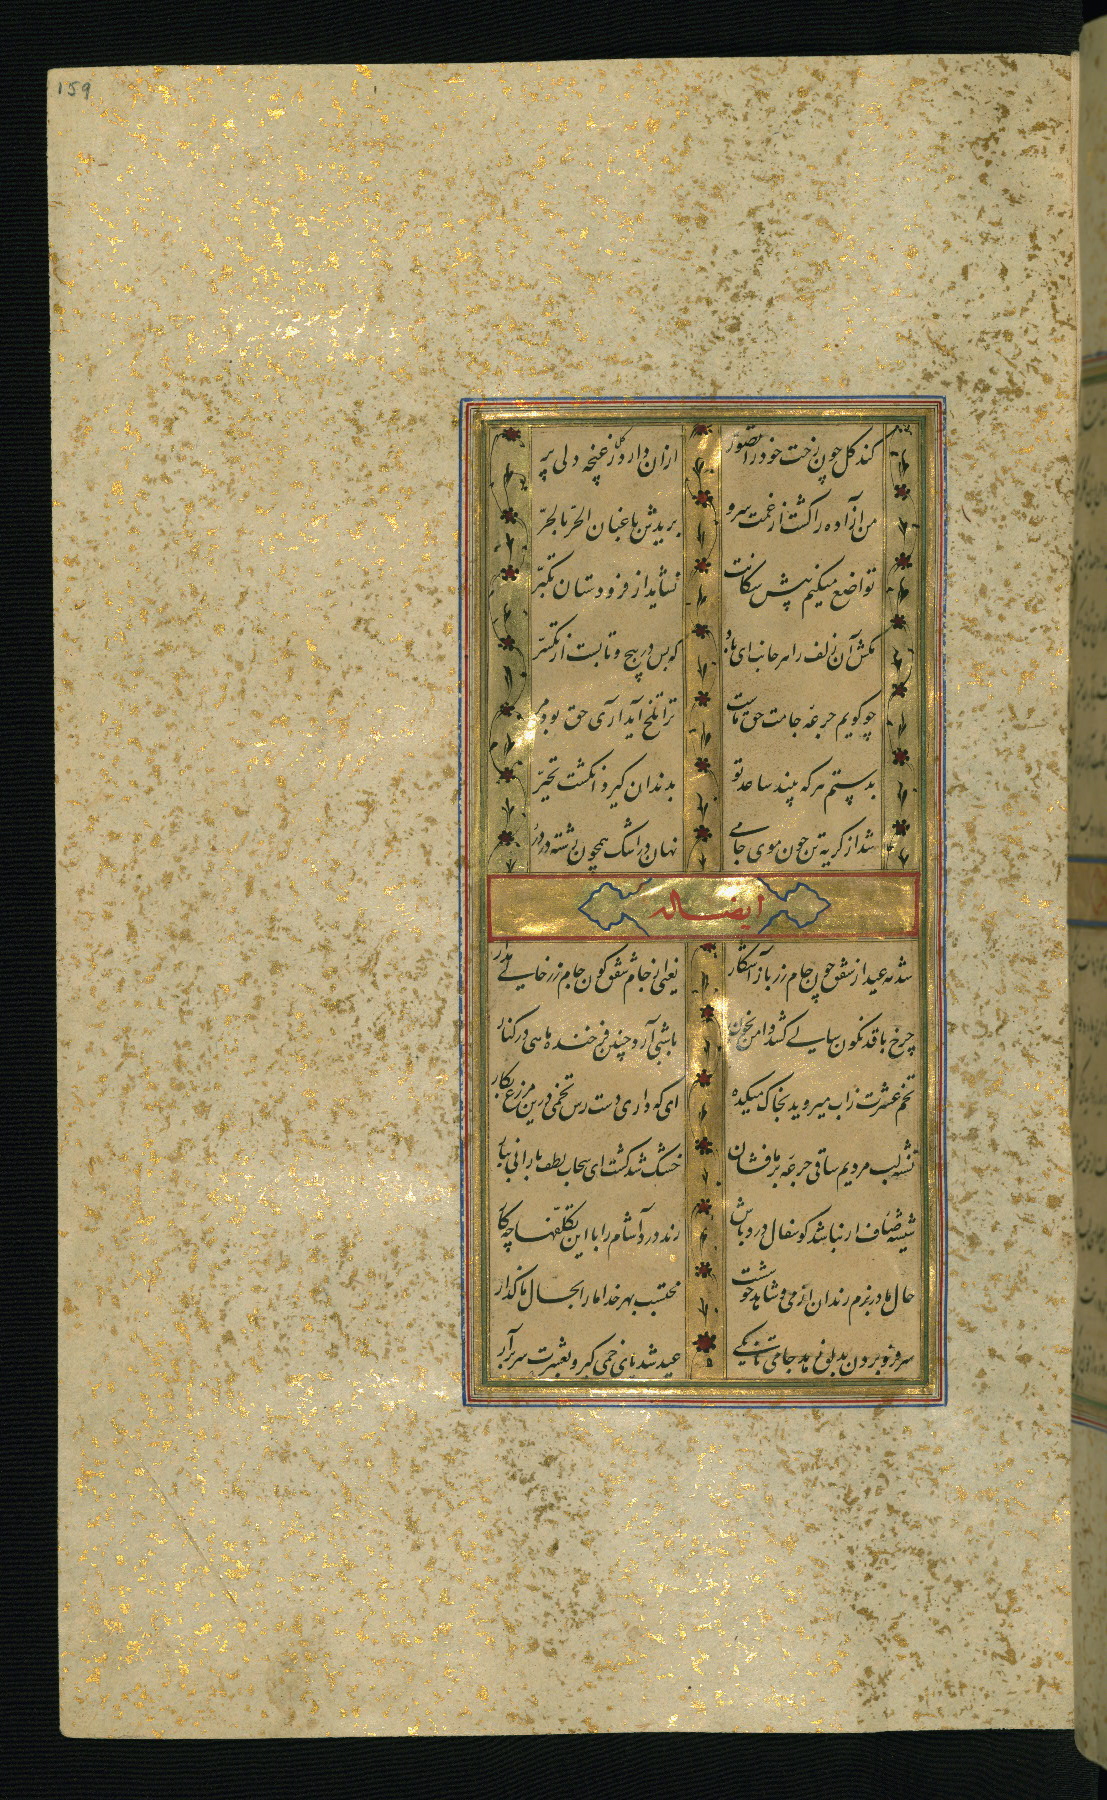 159
کند گل چون رخت خود را تصور
ازان دارد ز غنچه دلی پر
من آزاده را کشت از غمت سرو
بریدش باغبان الحرّ بالحرّ
تواضع میکنم پیش سکانت
نشاید از فرودستان تکبّر
مکش آن زلف را هر جانب ای باد
که بس در پیچ و تابست از تکسّر
چو گویم جرعه جامت حق ماست
ترا تلخ آید آری حق بود مر
بدستم هرکه بیند ساعد تو
بدندان گیرد انگشت تحیّر
شد از گریه تن چون موی جامی
نهان در اشک همچون رشته در در
ایضاً له
شد مه عید از شفق چون جام زر باز آشکار
یعنی از جام شفق گون جام زر خالی مدار
چرخ با قد نگون هیهات کشد دامن بخون
تخم عشرت ز آب میروید بخاک میکده
ای که داری دست رس تخمی درین مزرع بکار
تشنه لب مردیم ساقی جرعه بر ما فشان
خشک شد کشت ای سحاب لطف بارانی ببار
شیشه صاف ار نباشد کو سفال درد باش
رند درد آشام را با این تکلّفها چه کار
حال ما در بزم رندان از می و شاهد خوشست
محتسب بهر خدا ما را بحال ما گذار
عید شد پای خمی گیر و بعشرت سر برآر